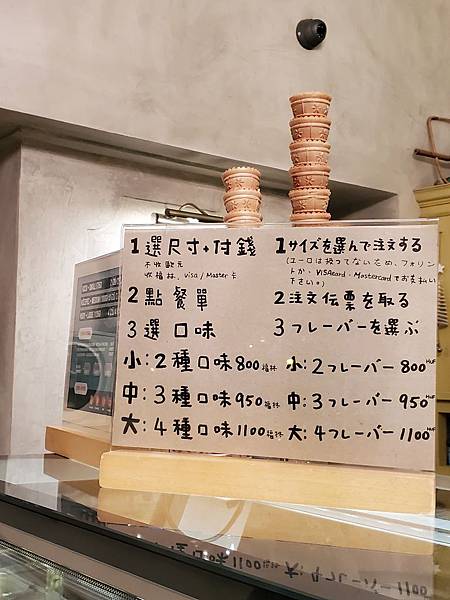 1選尺寸+付錢
不收歐元
收福林、Visa/Master卡
2點餐單
3選口味
小:2種口味800福林
中:3種口味950福林
大:4種口味1100福林
1サイズを選んで注文する
(ユーロは扱ってないため、フォリン
トか、VISAcard、Mastercardでお支払い
下さい。)
2注文伝票を取る
3フレーバーを選ぶ
小:2フレーバー800HUF
中:3フレーバー950HUF
大:4フレーバー1100HUF